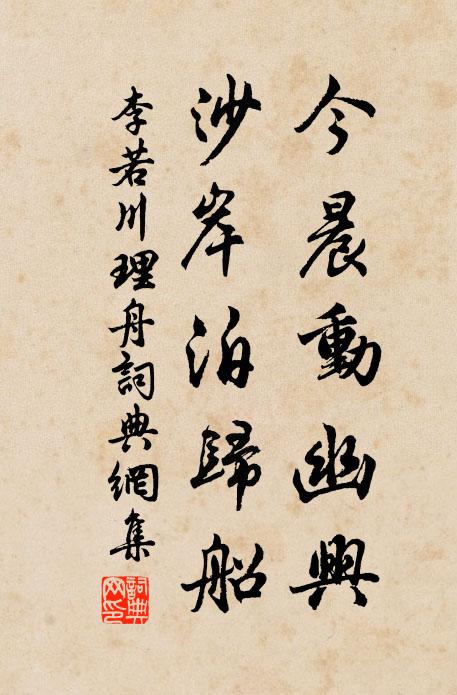 今晨動幽興
沙岸泊歸船
李若川理舟詞典網集
詞典網印